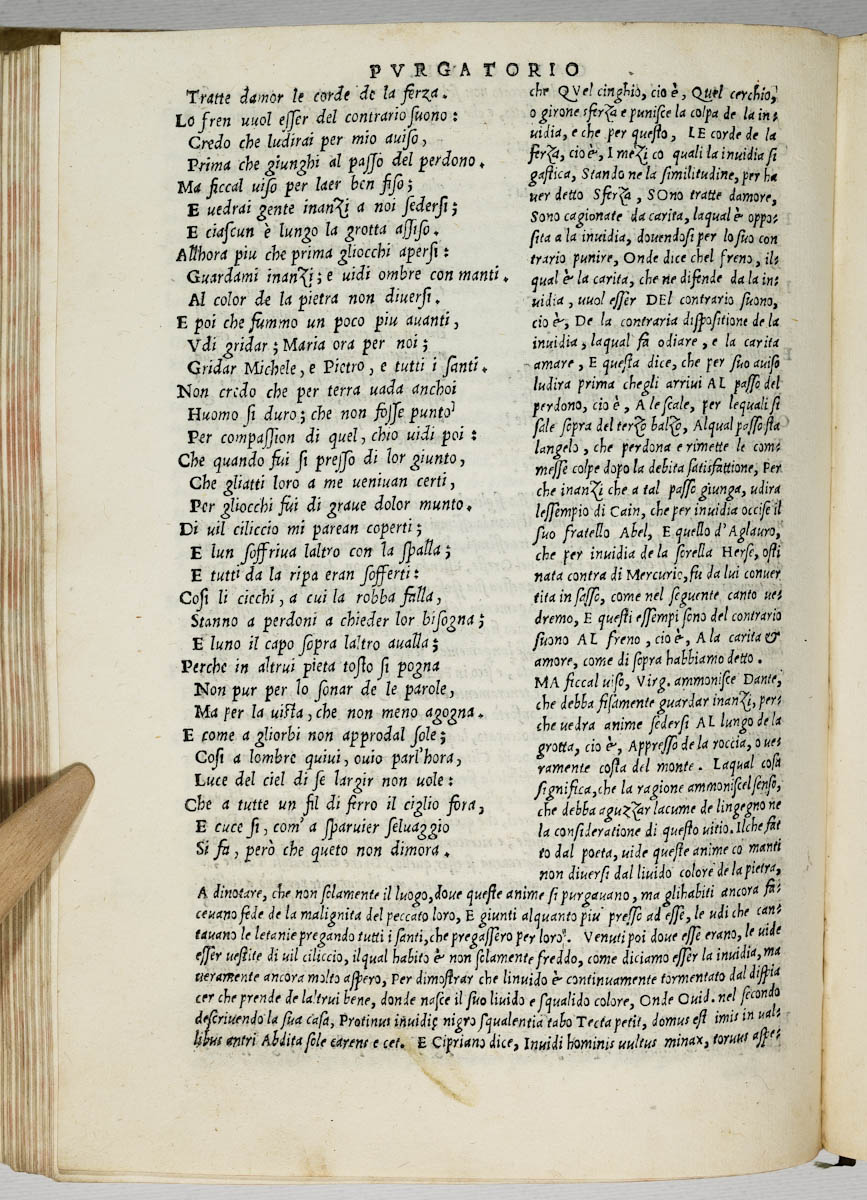 PVRGATORIO
Tratte damor le corde de la ferza.
Lo fren uuol esser del contrario suono:
Credo che ludirai per mio auiso,
Prima che giunghi al passo del perdono.
Ma ficcal uiso per laer ben fiso;
E uedrai gente inanzi a noi sedersi;
E ciascun è lungo la grotta assiso.
Allhora piu che prima gliocchi apersi:
Guardami inanzi; e uidi ombre con manti.
Al color de la pietra non diuersi.
E poi che fummo un poco piu auanti,
Vdi gridar; Maria ora per noi;
Gridar Michele, e Pietro, e tutti i santi.
Non credo che per terra uada anchoi
Huomo si duro; che non fosse punto
Per compassion di quel, chio uidi poi:
Che quando fui si presso di lor giunto,
Che gliatti loro a me ueniuan certi,
Per gliocchi fui di graue dolor munto.
Di uil ciliccio mi parean coperti;
E lun soffriua laltro con la spalla;
E tutti da la ripa eran sofferti:
Cosi li ciechi, a cui la robba falla,
Stanno a perdoni a chieder lor bisogna;
E luno il capo sopra laltro aualla;
Perche in altrui pieta tosto si pogna
Non pur per lo sonar de le parole,
Ma per la uista, che non meno agogna.
E come a gliorbi non approdal sole;
Cosi a lombre quiui, ouio parl'hora,
Luce del ciel di se largir non uole:
Che a tutte un fil di ferro il ciglio fora,
E cuce si, com' a sparuier seluaggio
Si fa, però che queto non dimora.
che QVel cinghio, cio è, Quel cerchio,
o girone sferza e punisce la colpa de la in:
uidia, e che per questo, LE corde de la
ferza, cio è, I mezi co quali la inuidia si
gastica, Stando ne la similitudine, per ha
uer detto Sferza, SOno tratte damore,
Sono cagionate da carita, laqual è oppo:
sita a la inuidia, douendosi per lo suo con
trario punire, Onde dice chel freno, il:
qual è la carita, che ne difende da la in:
uidia, uuol esser DEl contrario suono,
cio è, De la contraria dispositione de la
inuidia, laqual fa odiare, e la carita
amare, E questa dice, che per suo auiso
ludira prima chegli arriui AL passo del
perdono, cio è, A le scale, per lequali si
sale sopra del terzo balzo, Alqual passo sta
langelo, che perdona e rimette le com:
messe colpe dopo la debita satisfattione, Per
che inanzi che a tal passo giunga, udira
lessempio di Cain, che per inuidia occise il
suo fratello Abel, E quello d'Aglauro,
che per inuidia de la sorella Herse, osti
nata contra di Mercurio, fu da lui conuer
tita in sasso, come nel seguente canto ue:
dremo, E questi essempi sono del contrario
suono AL freno, cio è, A la carita &
amore, come di sopra habbiamo detto.
MA ficcal uiso, Virg. ammonisce Dante,
che debba fisamente guardar inanzi, per:
che uedra anime sedersi AL lungo de la
grotta, cio è, Appresso de la roccia, o ue:
ramente costa del monte. Laqual cosa
significa, che la ragione ammoniscel senso,
che debba aguzzar lacume de lingegno ne
la consideratione di questo uitio. Ilche fat
to dal poeta, uide queste anime co manti
non diuersi dal liuido colore de la pietra,
A dinotare, che non solamente il luogo, doue queste anime si purgauano, ma glihabiti ancora fa:
ceuano fede de la malignita del peccato loro, E giunti alquanto piu presso ad esse, le udi che can:
tauano le letanie pregando tutti i santi, che pregassero per loro. Venuti poi doue esse erano, le uide
esser uestite di uil ciliccio, ilqual habito è non solamente freddo, come diciamo esser la inuidia, ma
ueramente ancora molto aspero, Per dimostrar che linuido è continuamente tormentato dal dispia
cer che prende de laltrui bene, donde nasce il suo liuido e squalido colore, Onde Ouid. nel secondo
descriuendo la sua casa, Protinus inuidię nigro squalentia tabo Tecta petit, domus est imis in ual:
libus antri Abdita sole carens e cet. E Cipriano dice, Inuidi hominis uultus minax, toruus aspe: